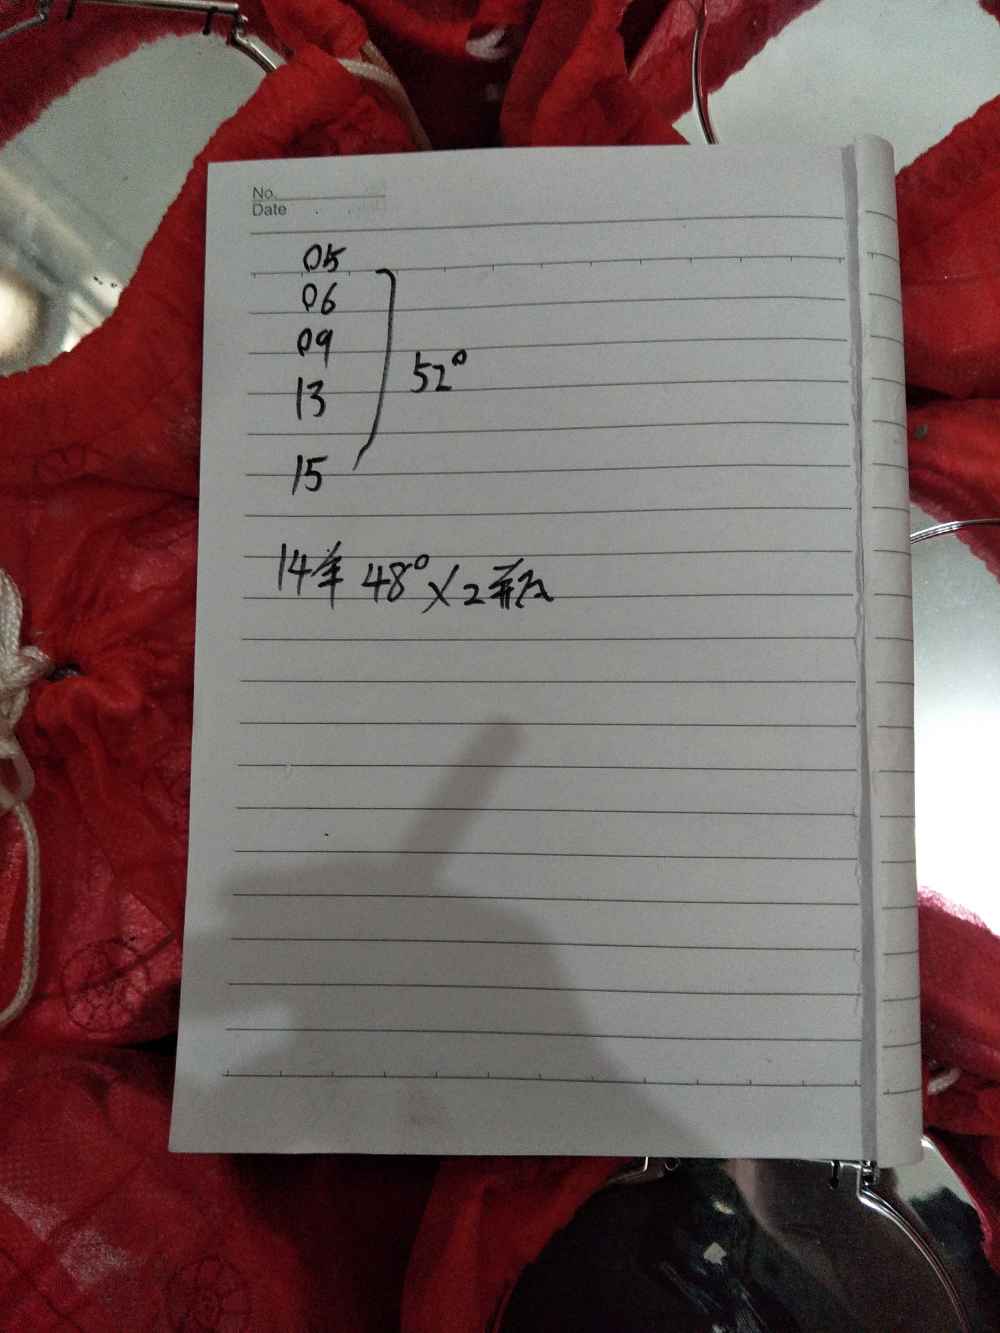 No.
Date
05
06
09
13
52°
15
14年 48° × 2瓶